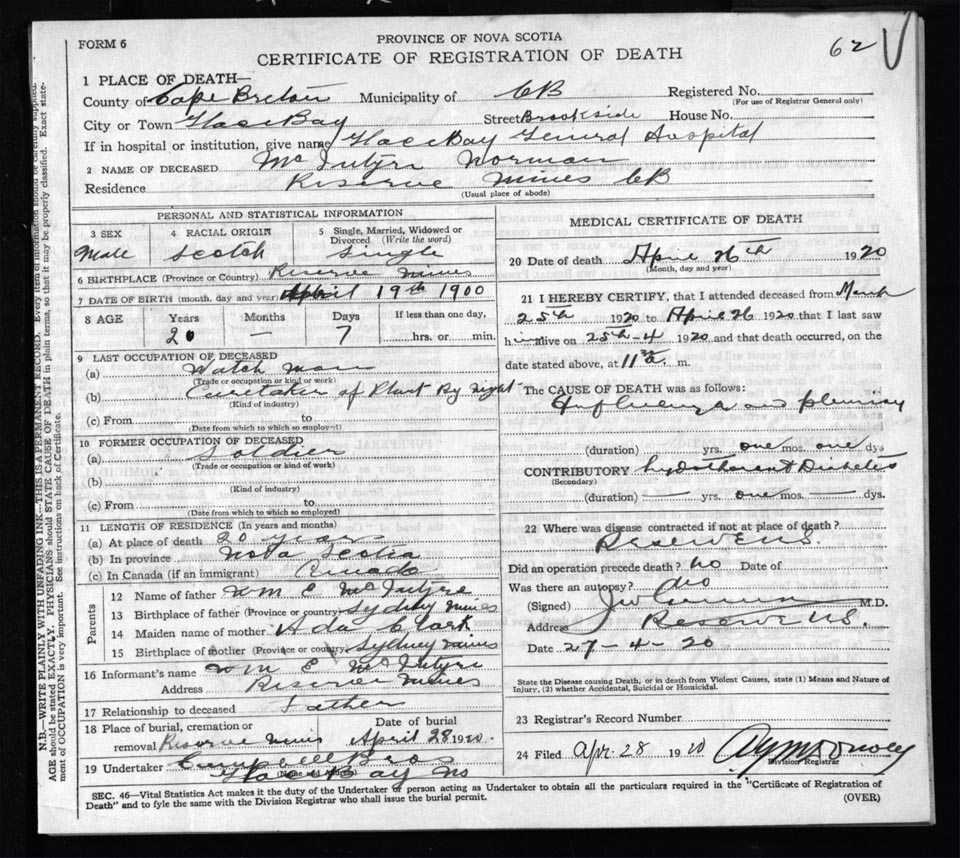 FORM 6
PROVINCE OF NOVA SCOTIA
CERTIFICATE OF REGISTRATION OF DEATH
62
1 PLACE OF DEATH—
County of Cape Breton Municipality of CB Registered No.
(For use of Registrar General only)
City or Town Glace Bay Street Brookside House No.
If in hospital or institution, give name Glace Bay General Hospital
2 NAME OF DECEASED McIntyre Norman
Residence Reserve Mines CB
(Usual place of abode)
PERSONAL AND STATISTICAL INFORMATION
3 SEX 4 RACIAL ORIGIN 5 Single, Married, Widowed or Divorced (Write the word)
Male Scotch Single
6 BIRTHPLACE (Province or Country) Reserve Mines
7 DATE OF BIRTH (month, day and year) April 19th 1900
8 AGE Years Months Days If less than one day,
20 — 7 hrs. or min.
9 LAST OCCUPATION OF DECEASED
(a) Watch man
(Trade or occupation or kind of work)
(b) Caretaker of Plant By Night
(Kind of industry)
(c) From to
(Date from which to which so employed)
10 FORMER OCCUPATION OF DECEASED
(a) Soldier
(Trade or occupation or kind of work)
(b)
(Kind of industry)
(c) From to
(Date from which to which so employed)
11 LENGTH OF RESIDENCE (In years and months)
(a) At place of death 20 years
(b) In province Nova Scotia
(c) In Canada (if an immigrant) Canada
Parents
12 Name of father Wm E McIntyre
13 Birthplace of father (Province or country) Sydney Mines
14 Maiden name of mother Ada Clark
15 Birthplace of mother (Province or country) Sydney Mines
16 Informant's name Wm E McIntyre
Address Reserve Mines
17 Relationship to deceased Father
18 Place of burial, cremation or removal Reserve Mines Date of burial April 28 1920.
19 Undertaker Campbell Bros
Glace Bay NS
MEDICAL CERTIFICATE OF DEATH
20 Date of death April 26th 1920
(Month, day and year)
21 I HEREBY CERTIFY, that I attended deceased from March
25th 1920 to April 26 1920 that I last saw
him alive on 25th-4 1920 and that death occurred, on the
date stated above, at 11 a. m.
The CAUSE OF DEATH was as follows:
Influenza and pleurisy
(duration) yrs. one mos. one dys
CONTRIBUTORY Diabetes
(Secondary)
(duration) — yrs. one mos. — dys.
22 Where was disease contracted if not at place of death?
Reserve N.S.
Did an operation precede death? No Date of
Was there an autopsy? No
(Signed) M.D.
Address Reserve N.S.
Date 27-4-20
State the Disease causing Death, or in death from Violent Causes, state (1) Means and Nature of
Injury, (2) whether Accidental, Suicidal or Homicidal.
23 Registrar's Record Number
24 Filed Apr 28 1920
Division Registrar
SEC. 46—Vital Statistics Act makes it the duty of the Undertaker or person acting as Undertaker to obtain all the particulars required in the "Certificate of Registration of
Death" and to fyle the same with the Division Registrar who shall issue the burial permit.
(OVER)
N.B.—WRITE PLAINLY WITH UNFADING INK—THIS IS A PERMANENT RECORD. Every item of information should be carefully supplied.
AGE should be stated EXACTLY. PHYSICIANS should STATE CAUSE OF DEATH in plain terms, so that it may be properly classified. Exact state-
ment of OCCUPATION is very important. See instructions on back of Certificate.